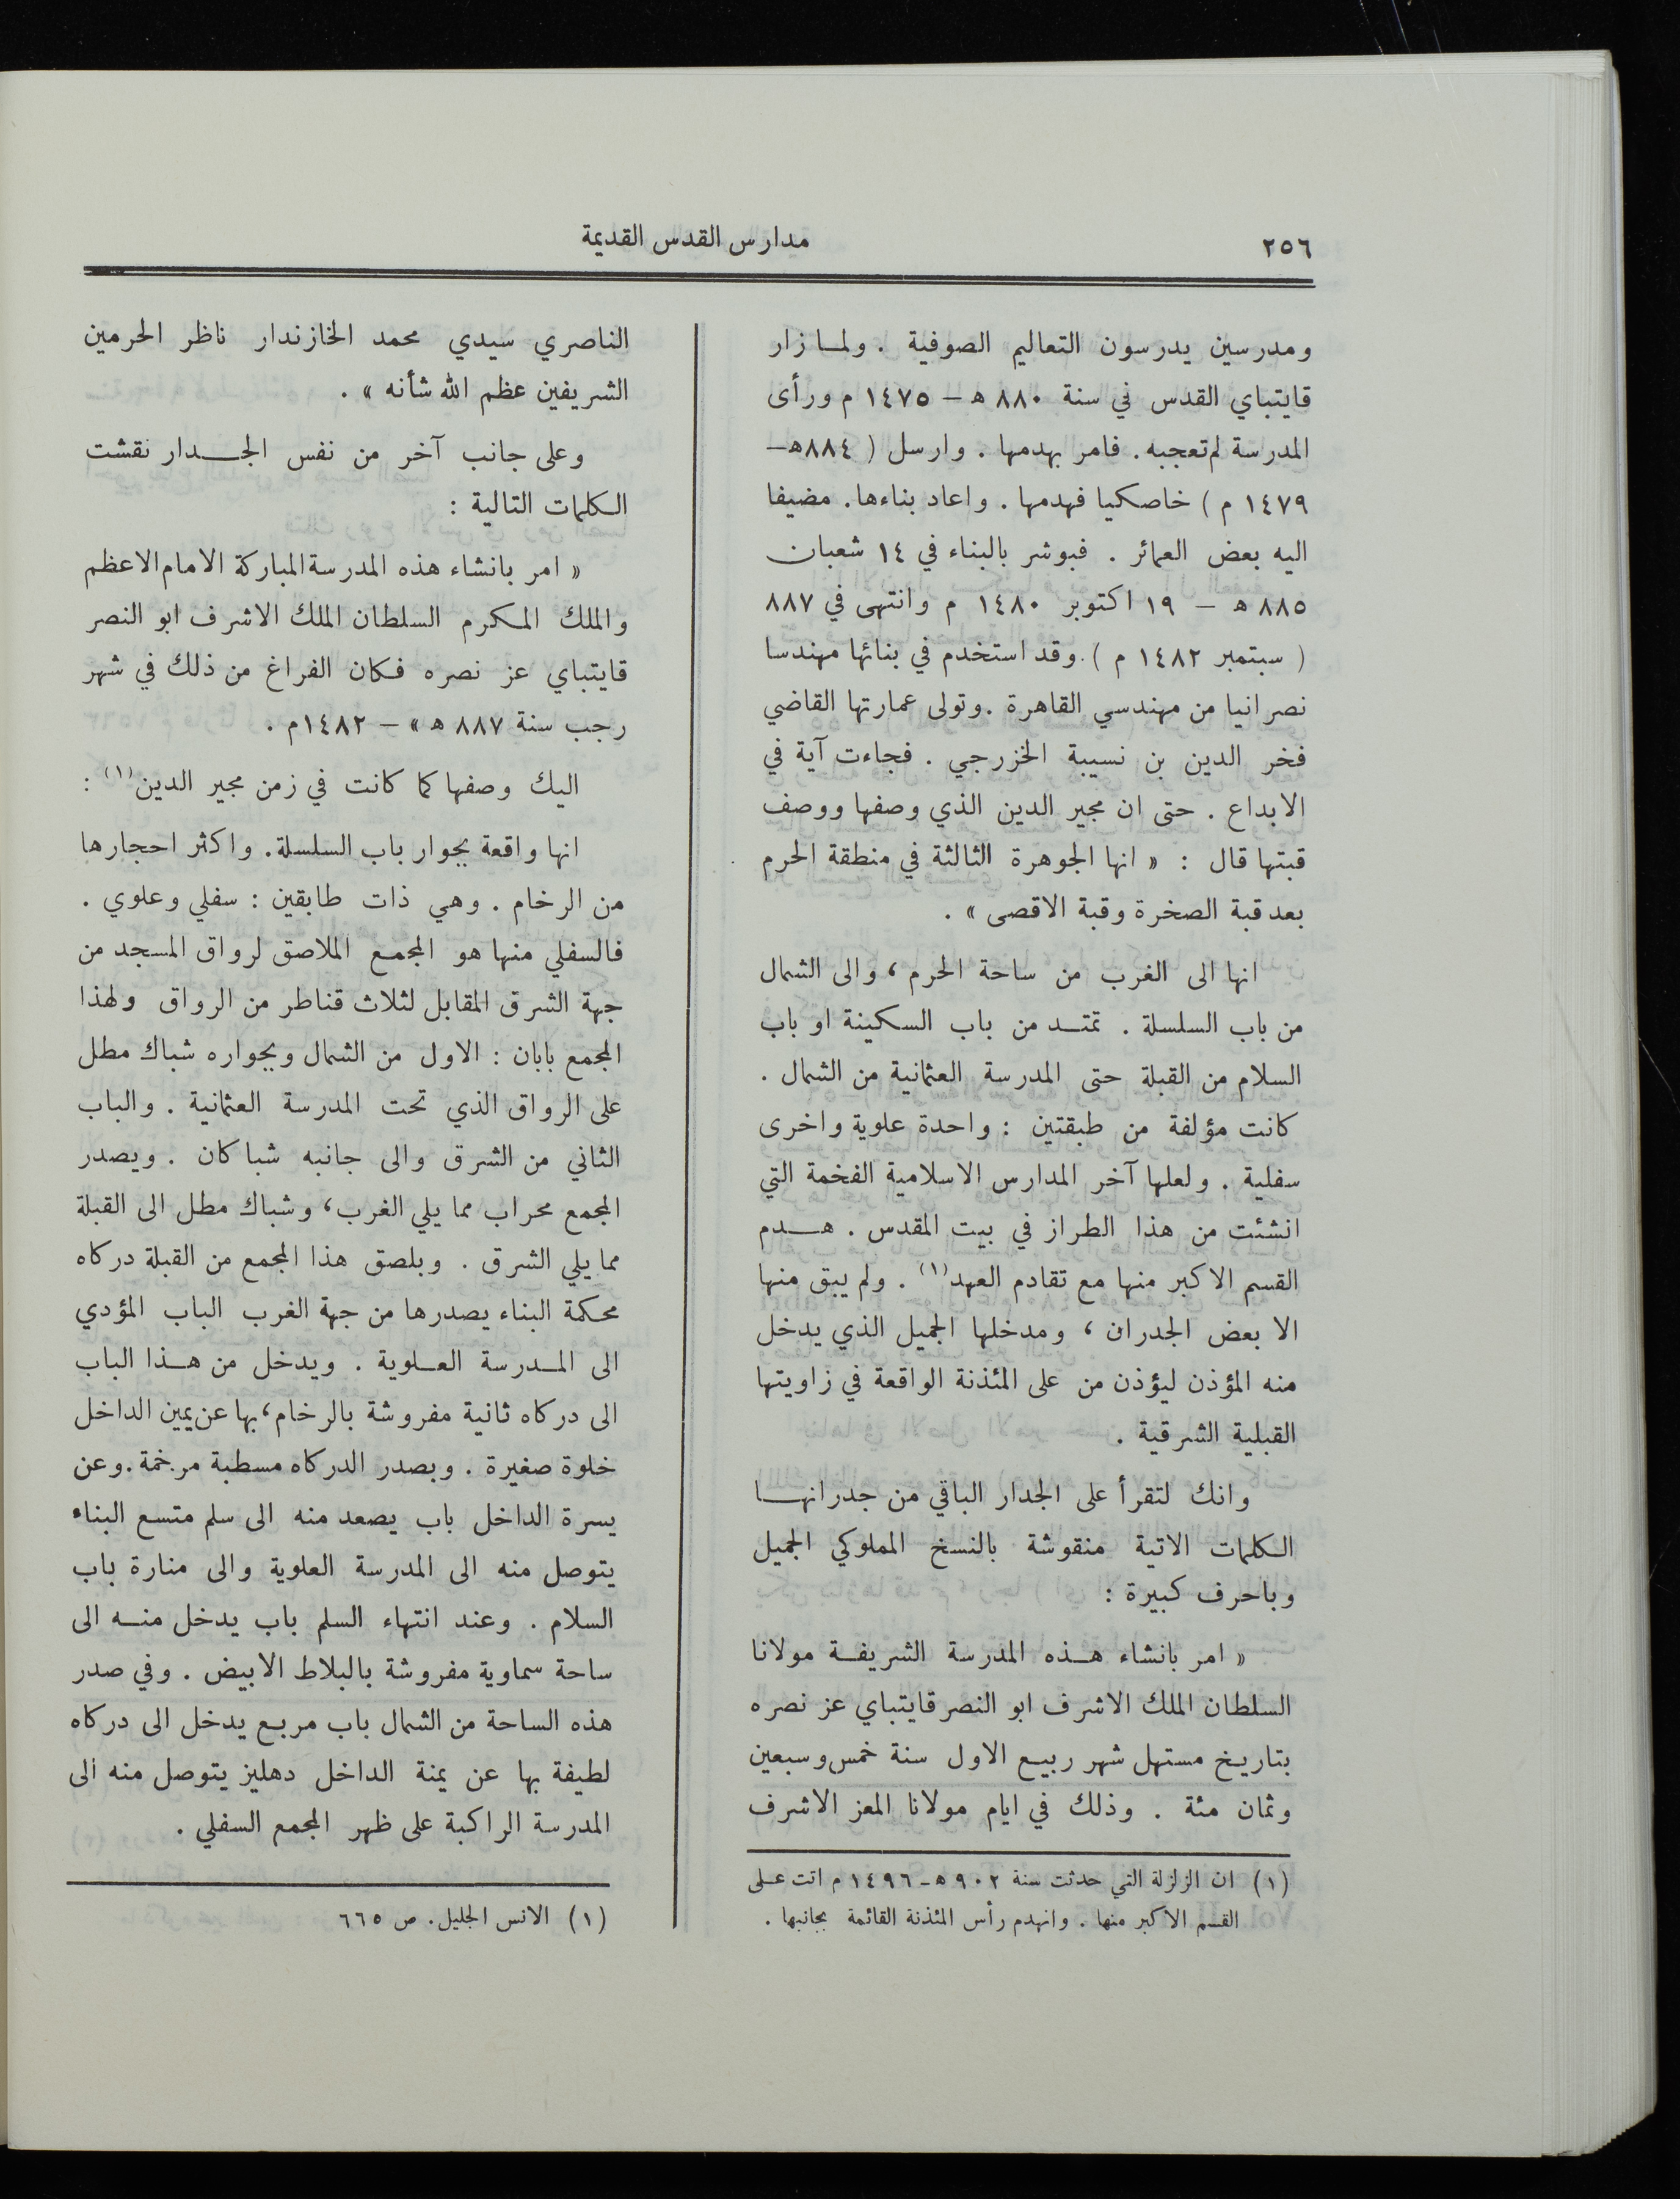 ٢٥٦
مدارس القدس القديمة
ومدرسين يدرسون التعاليم الصوفية . ولما زار
قايتباي القدس في سنة ٨٨٠ ھ – ١٤٧٥ م ورأى
المدرسة لم تعجبه . فامر بهدمها . وارسل ( ٨٨٤ھ–
١٤٧٩ م ) خاصكيا فهدمها . واعاد بناءها . مضيفا
اليه بعض العمائر . فبوشر بالبناء في ١٤ شعبان
٨٨٥ ھ – ١٩ اكتوبر ١٤٨٠ م وانتهى في ٨٨٧
( سبتمبر ١٤٨٢ م ) . وقد استخدم في بنائها مهندسا
نصرانيا من مهندسي القاهرة . وتولى عمارتها القاضي
فخر الدين بن نسيبة الخزرجي . فجاءت آية في
الابداع . حتى ان مجير الدين الذي وصفها ووصف
قبتها قال : « انها الجوهرة الثالثة في منطقة الحرم
بعد قبة الصخرة وقبة الاقصى » .
انها الى الغرب من ساحة الحرم ، والى الشمال
من باب السلسلة . تمتد من باب السكينة او باب
السلام من القبلة حتى المدرسة العثمانية من الشمال .
كانت مؤلفة من طبقتين : واحدة علوية واخرى
سفلية . ولعلها آخر المدارس الاسلامية الفخمة التي
انشئت من هذا الطراز في بيت المقدس . هدم
القسم الاكبر منها مع تقادم العهد(١) . ولم يبق منها
الا بعض الجدران ، ومدخلها الجميل الذي يدخل
منه المؤذن ليؤذن من على المئذنة الواقعة في زاويتها
القبلية الشرقية .
وانك لتقرأ على الجدار الباقي من جدرانها
الكلمات الاتية منقوشة بالنسخ المملوكي الجميل
وباحرف كبيرة :
« امر بانشاء هذه المدرسة الشريفة مولانا
السلطان الملك الاشرف ابو النصر قايتباي عز نصره
بتاريخ مستهل شهر ربيع الاول سنة خمس وسبعين
وثمان مئة . وذلك في ايام مولانا المعز الاشرف
(١) ان الزلزلة التي حدثت سنة ٩٠٢ھ-١٤٩٦ م اتت على
القسم الاكبر منها . وانهدم رأس المئذنة القائمة بجانبها .
الناصري سيدي محمد الخازندار ناظر الحرمين
الشريفين عظم الله شأنه » .
وعلى جانب آخر من نفس الجدار نقشت
الكلمات التالية :
« امر بانشاء هذه المدرسة المباركة الامام الاعظم
والملك المكرم السلطان الملك الاشرف ابو النصر
قايتباي عز نصره فكان الفراغ من ذلك في شهر
رجب سنة ٨٨٧ ھ » – ١٤٨٢م .
اليك وصفها كما كانت في زمن مجير الدين(١) :
انها واقعة بجوار باب السلسلة . واكثر احجارها
من الرخام . وهي ذات طابقين : سفلي وعلوي .
فالسفلي منها هو المجمع الملاصق لرواق المسجد من
جهة الشرق المقابل لثلاث قناطر من الرواق ولهذا
المجمع بابان : الاول من الشمال وبجواره شباك مطل
على الرواق الذي تحت المدرسة العثمانية . والباب
الثاني من الشرق والى جانبه شباكان . ويصدر
المجمع محراب مما يلي الغرب ، وشباك مطل الى القبلة
مما يلي الشرق . وبلصق هذا المجمع من القبلة دركاه
محكمة البناء يصدرها من جهة الغرب الباب المؤدي
الى المدرسة العلوية . ويدخل من هذا الباب
الى دركاه ثانية مفروشة بالرخام ، بها عن يمين الداخل
خلوة صغيرة . وبصدر الدركاه مسطبة مرخمة . وعن
يسرة الداخل باب يصعد منه الى سلم متسع البناء
يتوصل منه الى المدرسة العلوية والى منارة باب
السلام . وعند انتهاء السلم باب يدخل منه الى
ساحة سماوية مفروشة بالبلاط الابيض . وفي صدر
هذه الساحة من الشمال باب مربع يدخل الى دركاه
لطيفة بها عن يمنة الداخل دهليز يتوصل منه الى
المدرسة الراكبة على ظهر المجمع السفلي .
(١) الانس الجليل . ص ٦٦٥